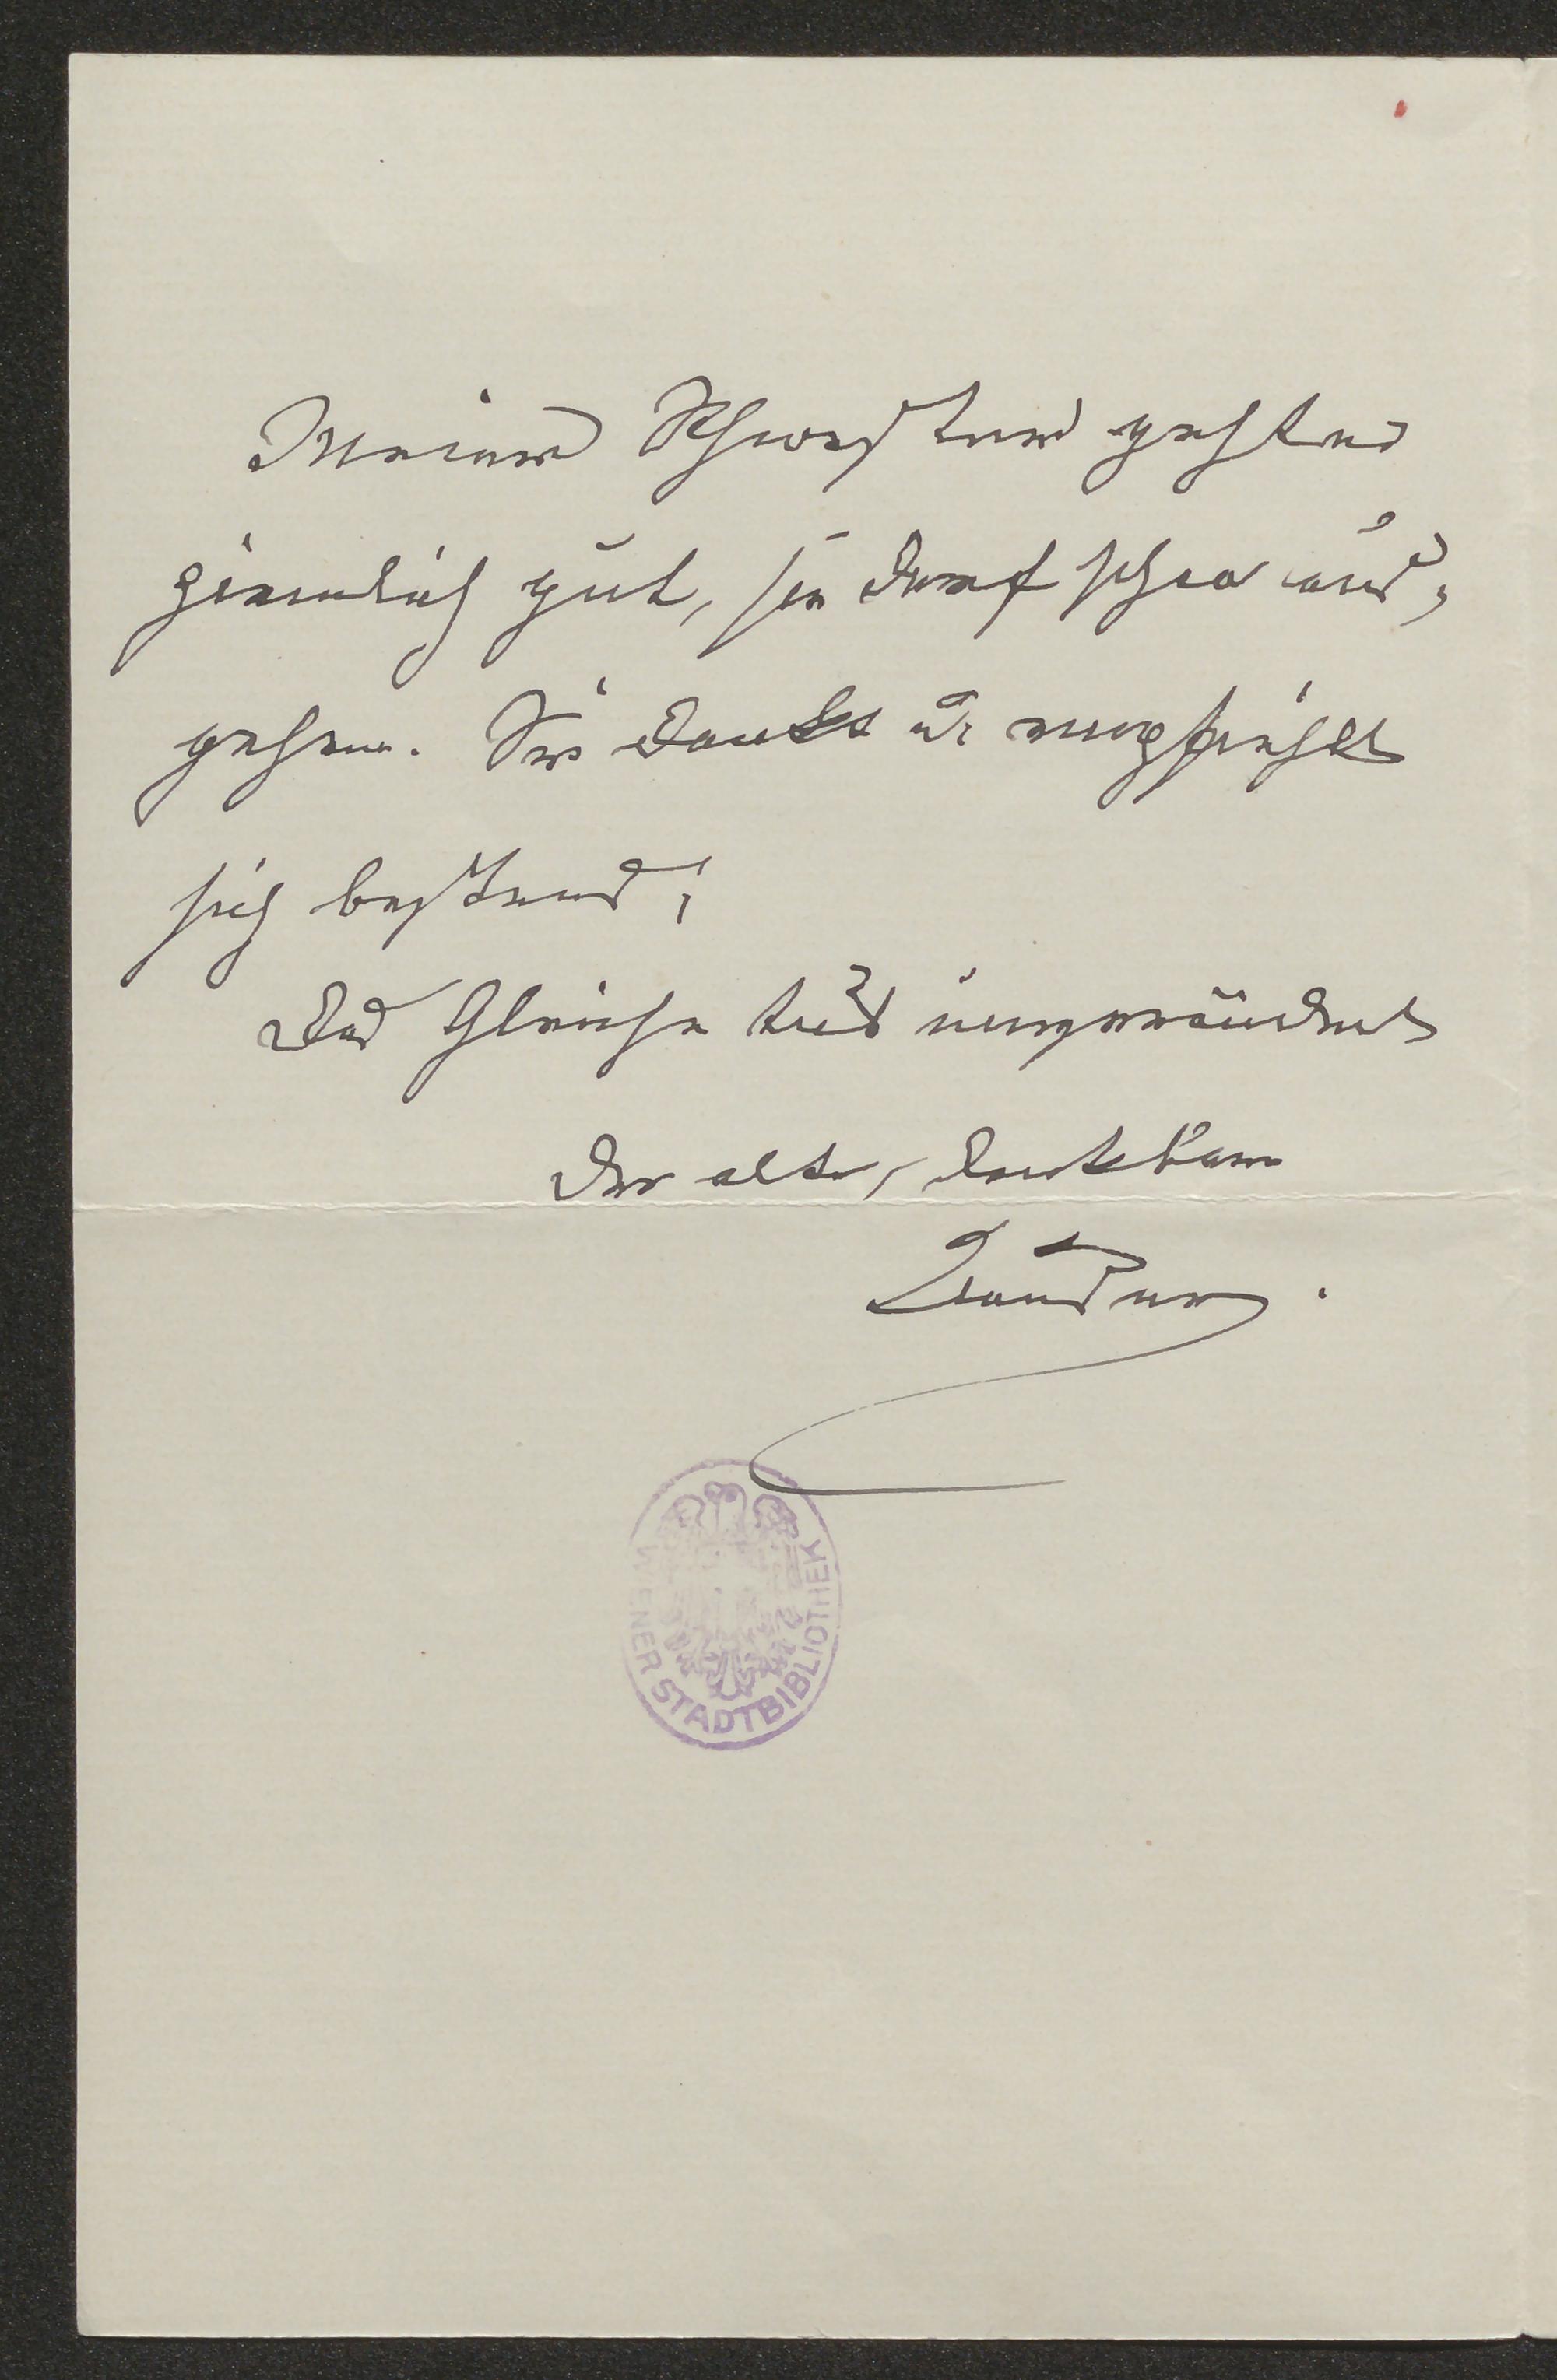 Meiner Schwester geht es
ziemlich gut, sie darf schon aus-
gehen. Sie dankt u. empfiehlt
sich bestens;
das Gleiche tut ungesäumt
der alte, dankbare
WIENER STADTBIBLIOTHEK